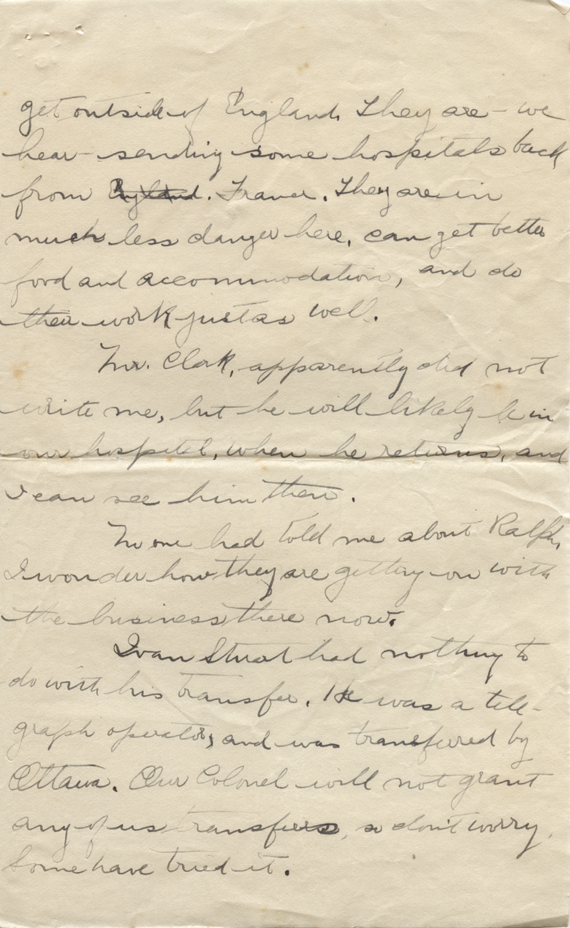 get outside of England. They are - we
hear - sending some hospitals back
from England. France. They are in
much less danger here, can get better
food and accommodation, and do
their work just as well.
Mr. Clark, apparently did not
write me, but he will likely be in
our hospital, when he returns, and
I can see him then.
No one had told me about Ralph,
I wonder how they are getting on with
the business there now.
Ivan Stuart had nothing to
do with his transfer. He was a tele-
graph operator, and was transferred by
Ottawa. Our Colonel will not grant
any of us transfers, so don't worry.
Some have tried it.